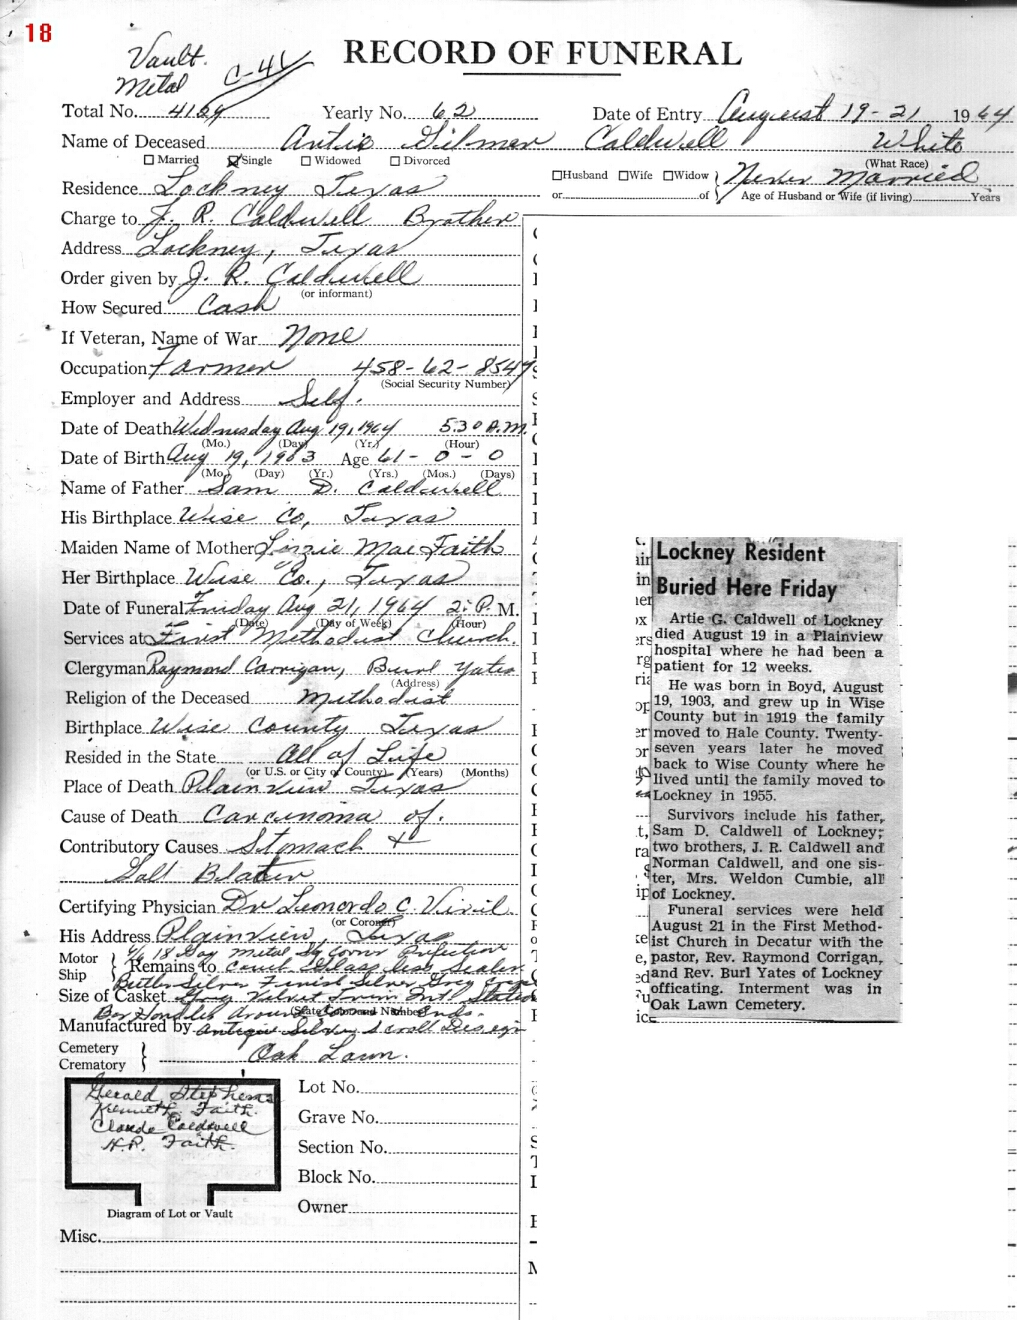 18
Vault.
Metal
C-41
RECORD OF FUNERAL
Total No. 4169 Yearly No. 62 Date of Entry August 19-21 1964
Name of Deceased Artie Gilmer Caldwell White
☐ Married ☑ Single ☐ Widowed ☐ Divorced (What Race)
Residence Lockney Texas ☐ Husband ☐ Wife ☐ Widow } Never Married
or of Age of Husband or Wife (if living) Years
Charge to J. R. Caldwell Brother
Address Lockney, Texas
Order given by J. R. Caldwell
(or informant)
How Secured Cash
If Veteran, Name of War None
Occupation Farmer 458-62-8547
(Social Security Number)
Employer and Address Self.
Date of Death Wednesday Aug 19, 1964 5:30 A.M.
(Mo.) (Day) (Yr.) (Hour)
Date of Birth Aug 19, 1903 Age 61-0-0
(Mo.) (Day) (Yr.) (Yrs.) (Mos.) (Days)
Name of Father Sam D. Caldwell
His Birthplace Wise Co, Texas
Maiden Name of Mother Lizzie Mae Faith
Her Birthplace Wise Co., Texas
Date of Funeral Friday Aug 21, 1964 2: P. M.
(Date) (Day of Week) (Hour)
Services at First Methodist Church.
Clergyman Raymond Corrigan, Burl Yates
(Address)
Religion of the Deceased Methodist
Birthplace Wise County Texas
Resided in the State All of Life
(or U.S. or City of County) (Years) (Months)
Place of Death Plainview Texas
Cause of Death Carcinoma of.
Contributory Causes Stomach +
Gall Blater
Certifying Physician Dr Leonardo C.
(or Coroner)
His Address Plainview, Texas
4/6 18 Gay Metal Sq Corner Perfection
Motor Ship { Remains to Glass Sealer
Butler Silver Finish Silver Grey
Size of Casket Grey Velvet
Handles Ends.
(State Cabinet Number)
Manufactured by Antique Silver Scroll Design
Cemetery
Crematory } Oak Lawn.
Gerald Stephens
Kenneth Faith.
Claude Caldwell
H.P. Faith.
Diagram of Lot or Vault
Lot No.
Grave No.
Section No.
Block No.
Owner
Misc.
Lockney Resident
Buried Here Friday
Artie G. Caldwell of Lockney
died August 19 in a Plainview
hospital where he had been a
patient for 12 weeks.
He was born in Boyd, August
19, 1903, and grew up in Wise
County but in 1919 the family
moved to Hale County. Twenty-
seven years later he moved
back to Wise County where he
lived until the family moved to
Lockney in 1955.
Survivors include his father,
Sam D. Caldwell of Lockney;
two brothers, J. R. Caldwell and
Norman Caldwell, and one sis-
ter, Mrs. Weldon Cumbie, all
of Lockney.
Funeral services were held
August 21 in the First Method-
ist Church in Decatur with the
pastor, Rev. Raymond Corrigan,
and Rev. Burl Yates of Lockney
officating. Interment was in
Oak Lawn Cemetery.